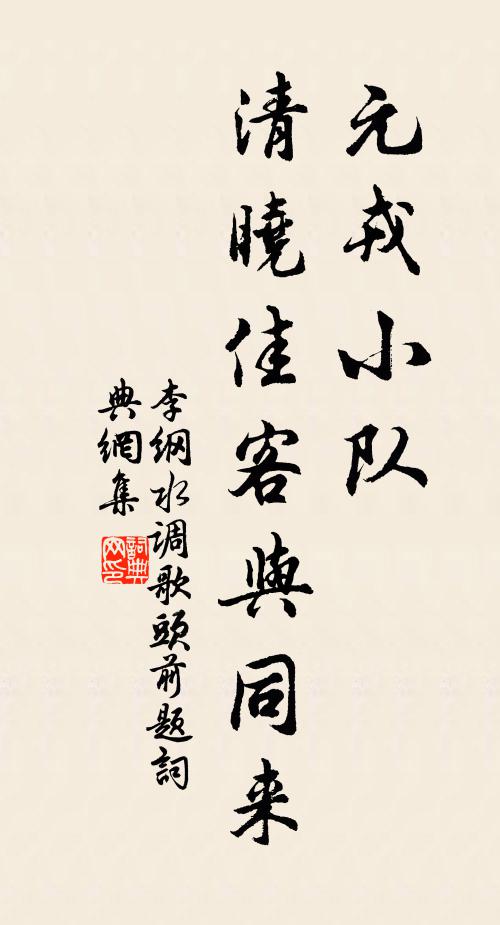 元戎小队
清曉佳客與同来
李纲水调歌頭前题詞
典網集
詞典
网印